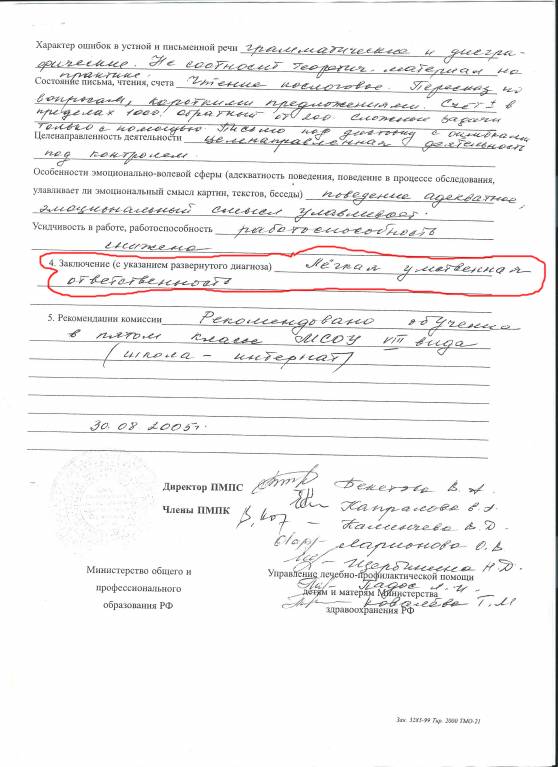 Характер ошибок в устной и письменной речи грамматические и дисгра-
фические. Не соотносит теоретич. материал на
практике.
Состояние письма, чтения, счета Чтение послоговое. Пересказ по
вопросам, короткими предложениями. Счёт ± в
пределах 1000. обратный от 200. сложной задачи
только с помощью. Письмо под диктовку с ошибками
Целенаправленность деятельности целенаправленная деятельность
под контролем.
Особенности эмоционально-волевой сферы (адекватность поведения, поведение в процессе обследования,
улавливает ли эмоциональный смысл картин, текстов, беседы) поведение адекватное,
эмоциональный смысл улавливает.
Усидчивость в работе, работоспособность работоспособность
снижена
4. Заключение (с указанием развернутого диагноза) Лёгкая умственная
ответственность
5. Рекомендации комиссии Рекомендовано обучение
в пятом классе МСОУ VIII вида
(школа - интернат)
30.08 2005г.
Директор ПМПС Бекетова В. А.
Члены ПМПК Капралова Е. А.
Каменчева В. Д.
Ларионова О. В
Щербинина Н. Д.
Министерство общего и
профессионального
образования РФ
Управление лечебно-профилактической помощи
детям и матерям Министерства
Ковалёва Т. М
здравоохранения РФ
Зак. 3283-99 Тир. 2000 ТМО-21